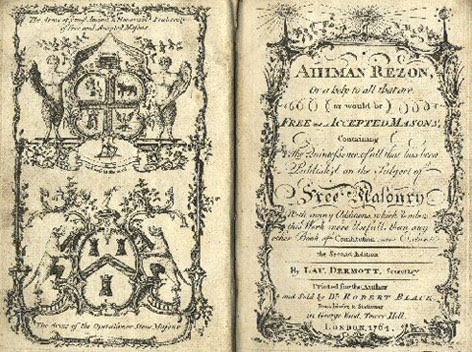 The Arms of ye most Ancient & Honorable Fraternity
of Free and Accepted Masons
The Arms of the Operative or Stone Masons
AHIMAN REZON,
Or a help to all that are
(or would be)
FREE and ACCEPTED MASONS,
Containing
The Quintessence of all that has been
Publish'd on the Subject of
Free Masonry
With many Additions, which renders
this Work more Usefull, than any
other Book of Constitution, now Extant
the Second Edition
By LAU. DERMOTT, Secretary
Printed for the Author
and Sold by Br. ROBERT BLACK,
Bookbinder & Stationer
in George Yard, Tower Hill,
LONDON, 1764.